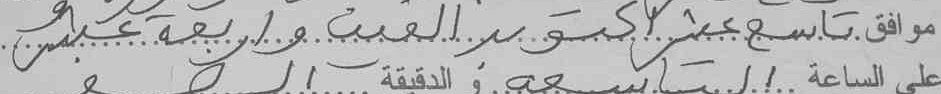 موافق تاسع عشر اكتوبر الفين واربعة عشر
على الساعة التاسعة و الدقيقة